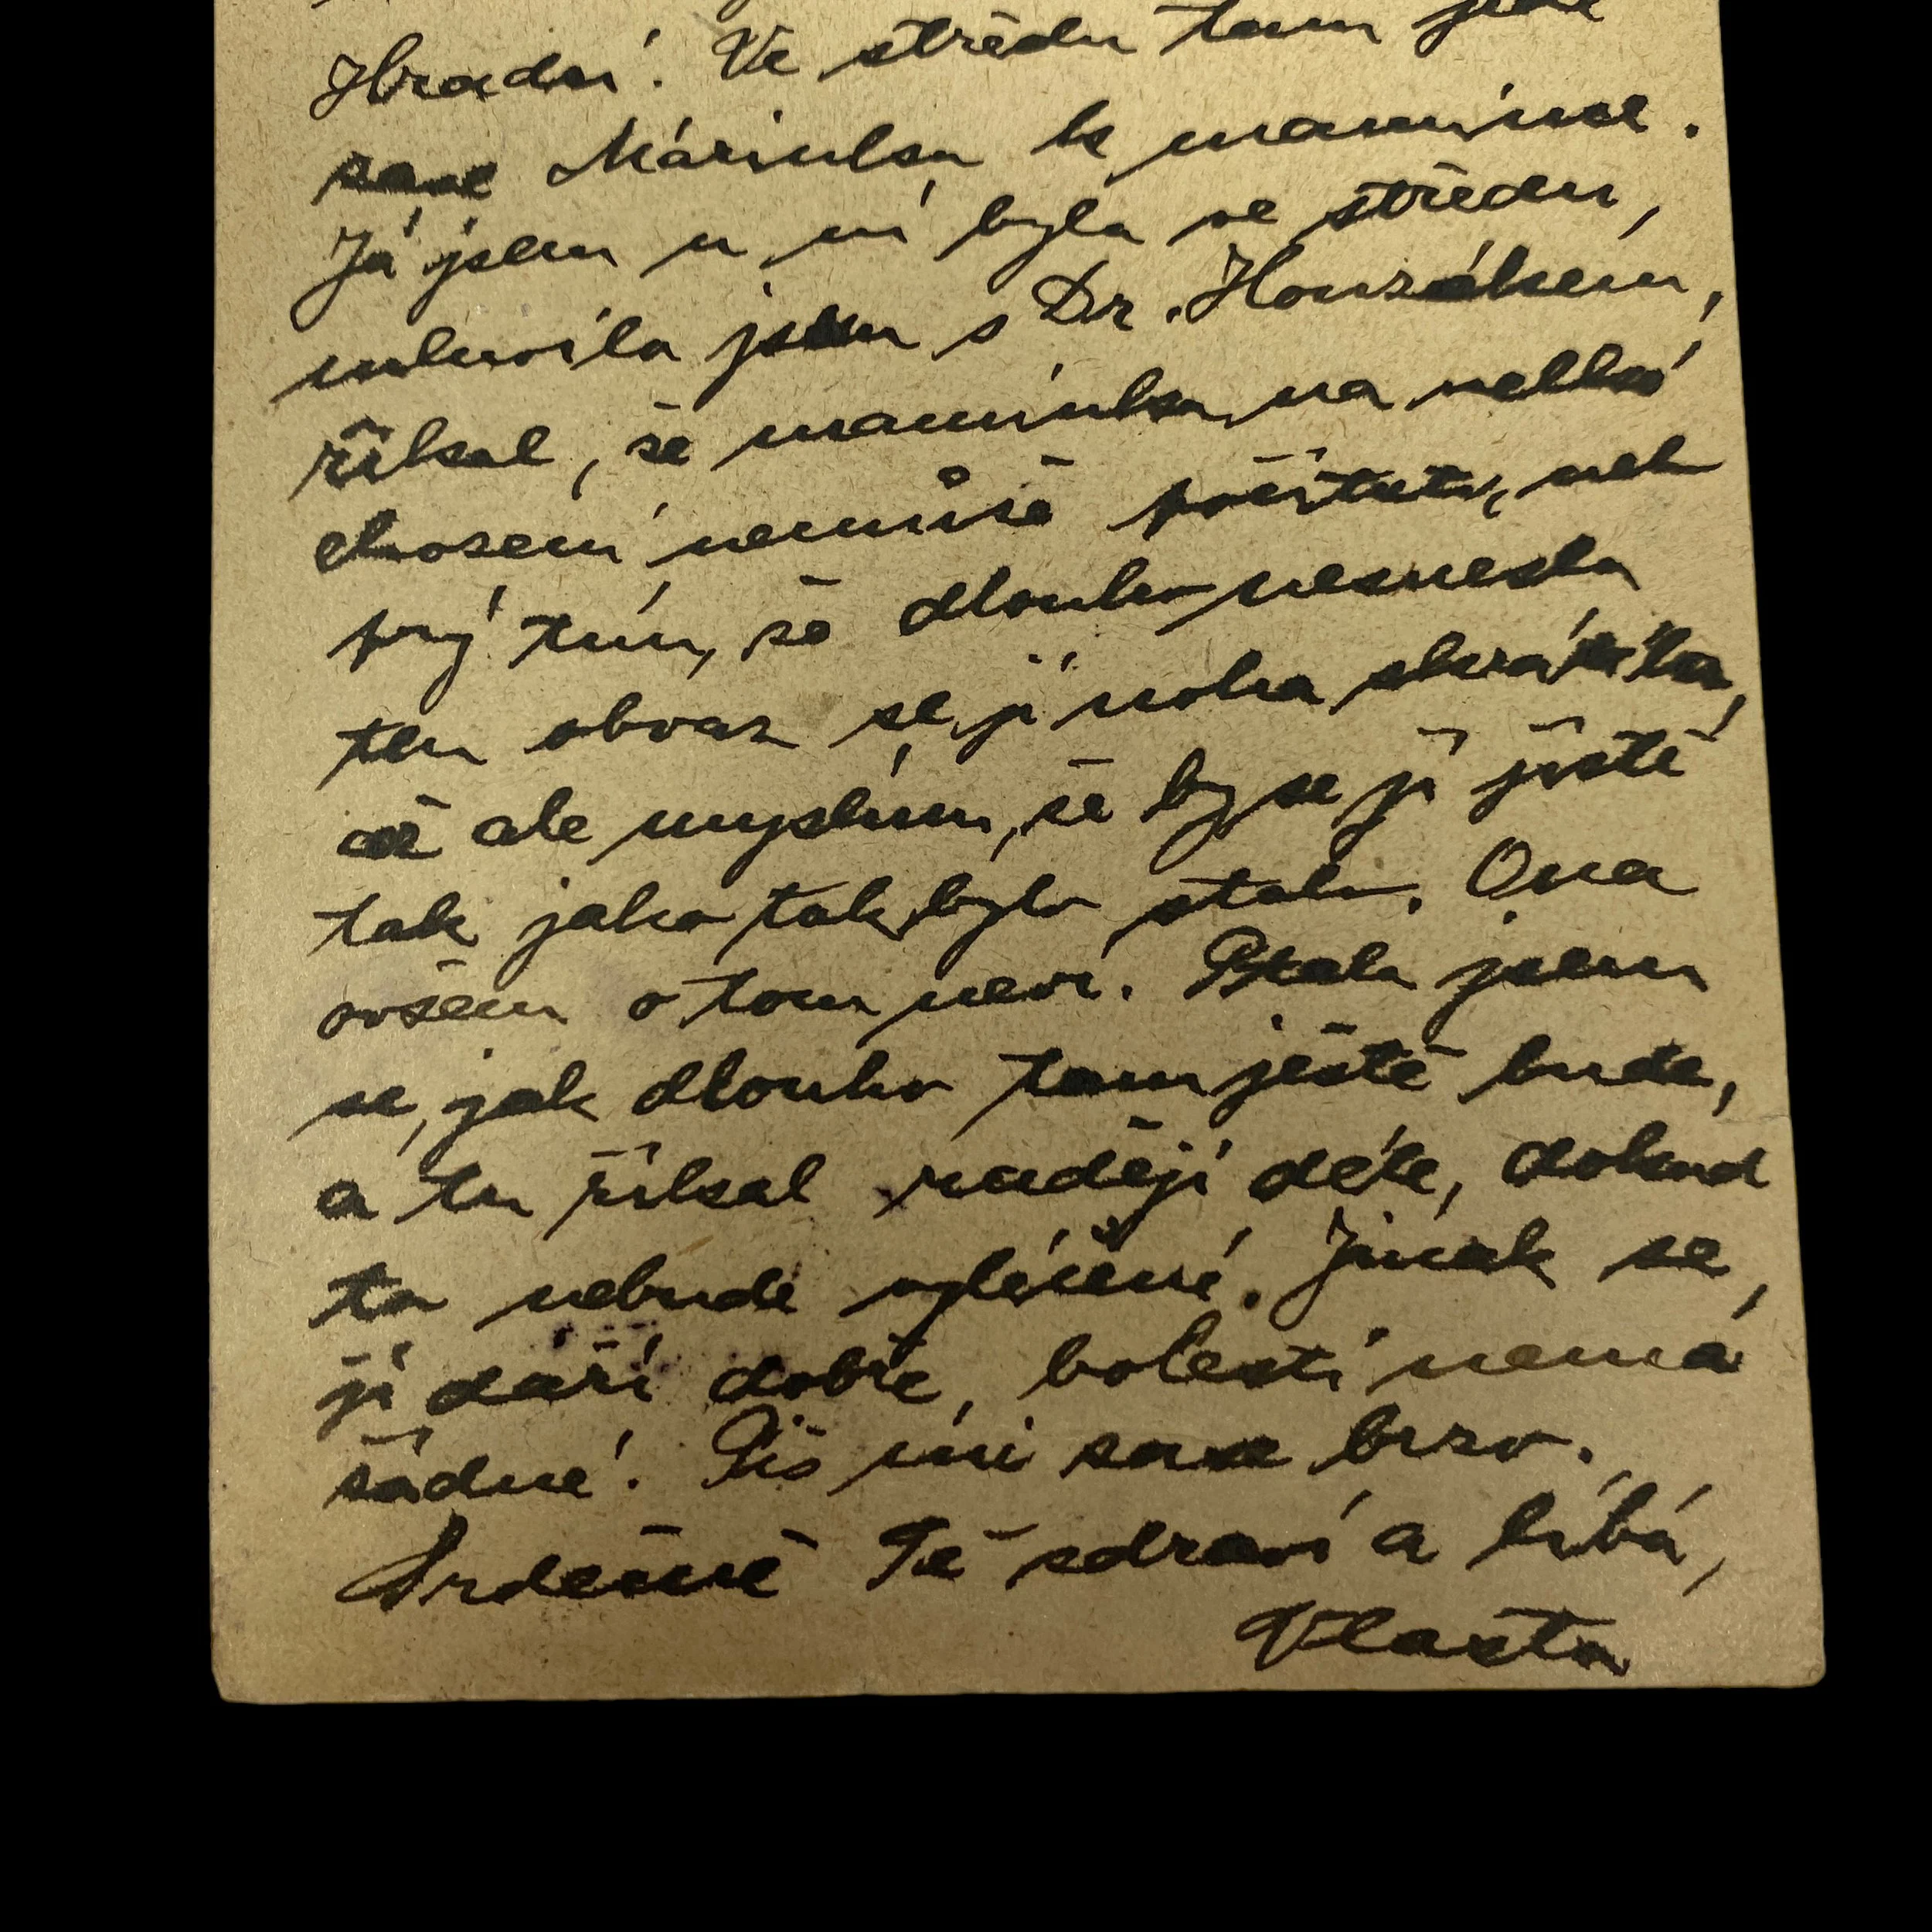 Hradní. Ve středu tam jede
zase Márinka k mamince.
Já jsem u ní byla ve středu,
mluvila jsem s Dr. Honzákem,
říkal, že maminka na velké
chození nemůže počítati, neb
prý tím, že dlouho nesnesla
ten obvaz se jí noha zkrátila,
což ale myslím, že by se jí jistě
tak jako tak bylo stalo. Ona
ovšem o tom neví. Ptala jsem
se, jak dlouho tam ještě bude,
a tu říkal raději déle, dokud
to nebude vyléčené. Jinak se
jí daří dobře, bolesti nemá
žádné. Piš mi zase brzo.
Srdečně Tě zdraví a líbá,
Vlasta